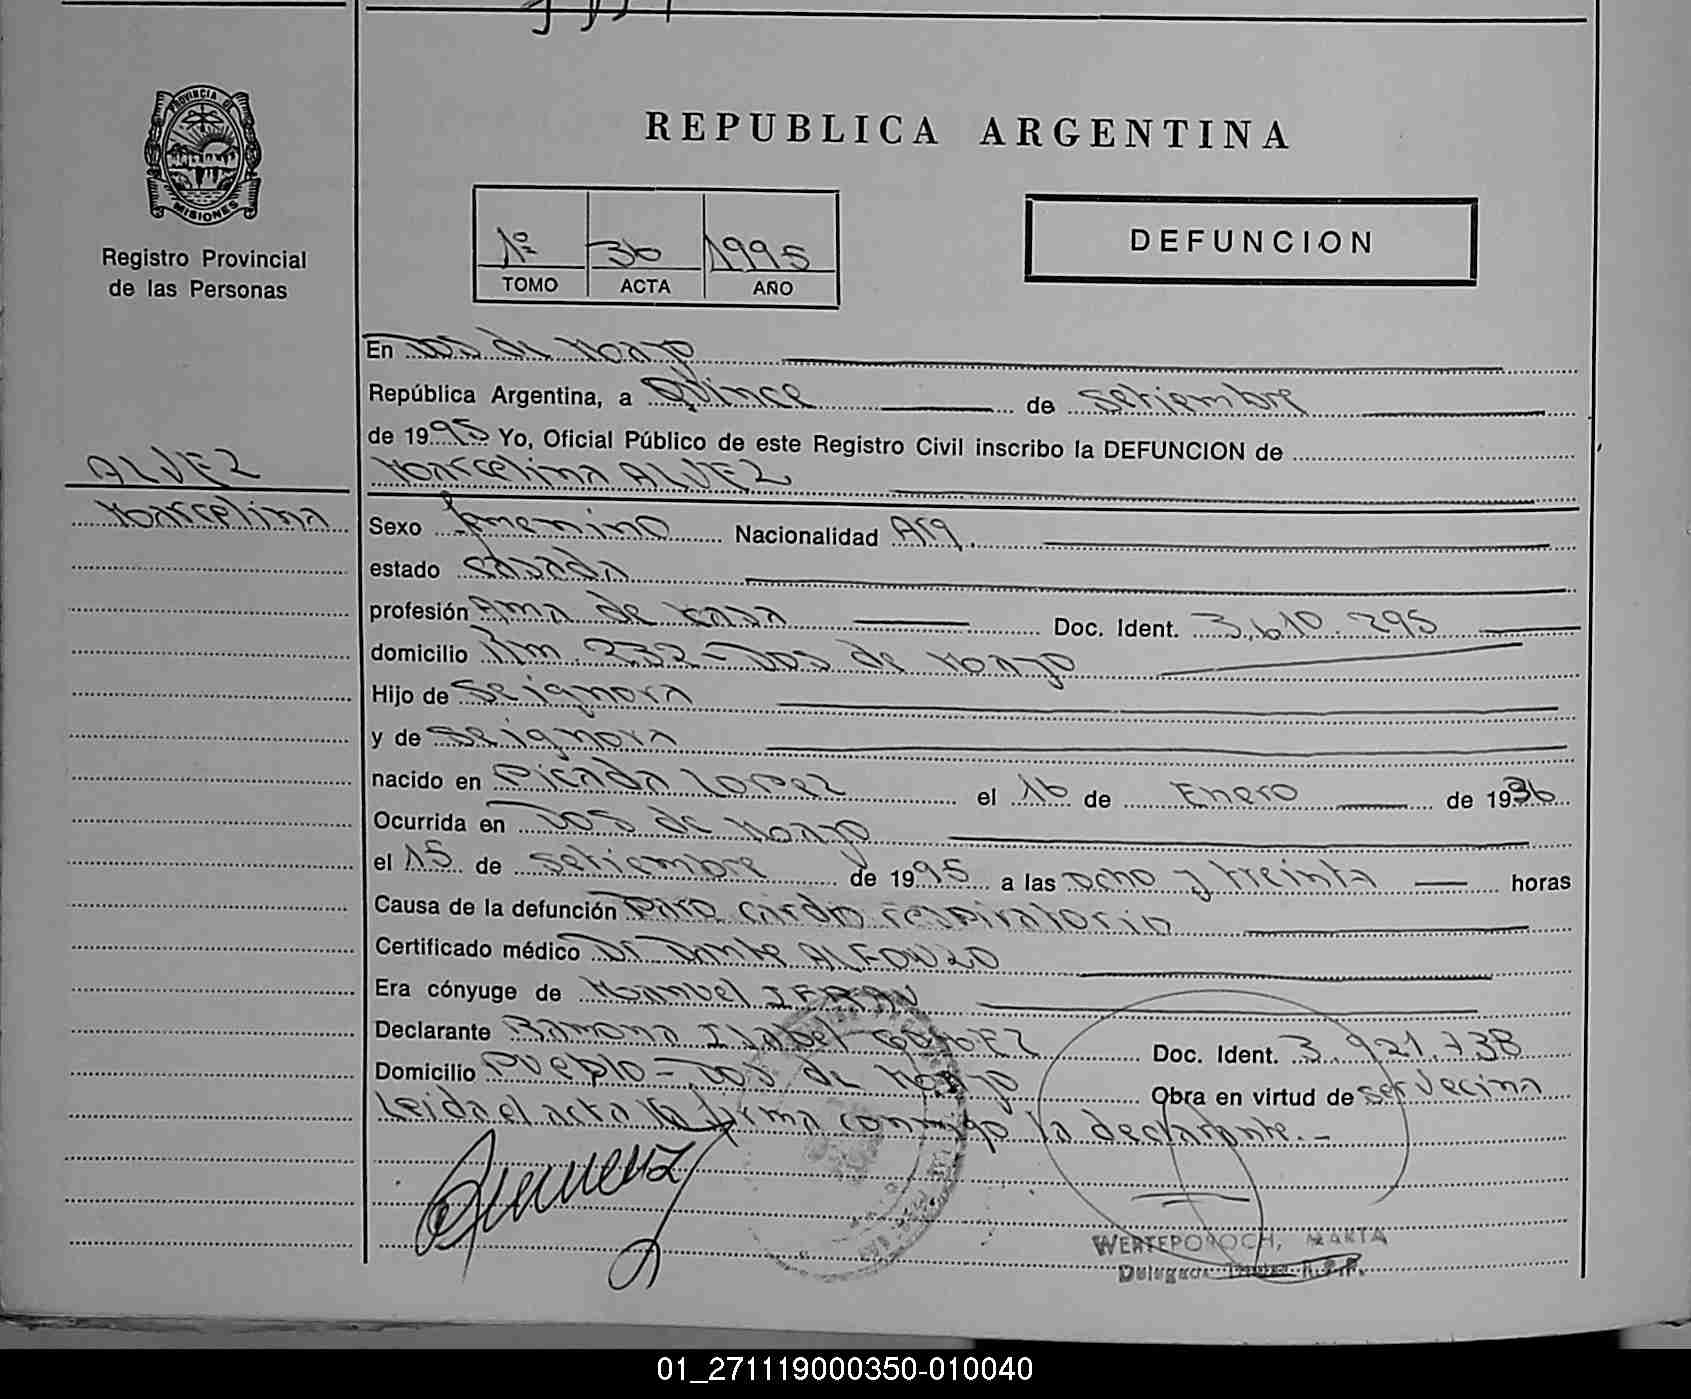 PROVINCIA DE
MISIONES
Registro Provincial
de las Personas
REPUBLICA ARGENTINA
1º 36 1995
TOMO ACTA AÑO
DEFUNCION
En Dos de Mayo
República Argentina, a Quince de setiembre
de 1995 Yo, Oficial Público de este Registro Civil inscribo la DEFUNCION de
Marcelina ALVEZ
ALVEZ
Marcelina
Sexo femenino Nacionalidad Arg.
estado casada
profesión Ama de casa Doc. Ident. 3.610.295
domicilio Km. 232 - Dos de Mayo
Hijo de Se ignora
y de Se ignora
nacido en Picada Lopez el 16 de Enero de 1936
Ocurrida en Dos de Mayo
el 15 de setiembre de 1995 a las ocho y treinta horas
Causa de la defunción Paro cardio respiratorio
Certificado médico Dr Dante ALFONZO
Era cónyuge de Manuel IFRAN
Declarante Ramona Isabel GOMEZ Doc. Ident. 3.921.738
Domicilio Pueblo - Dos de Mayo Obra en virtud de ser vecina
Leida el acta la firma conmigo la declarante. -
WERTEPOROCH, MARTA
01_271119000350-010040